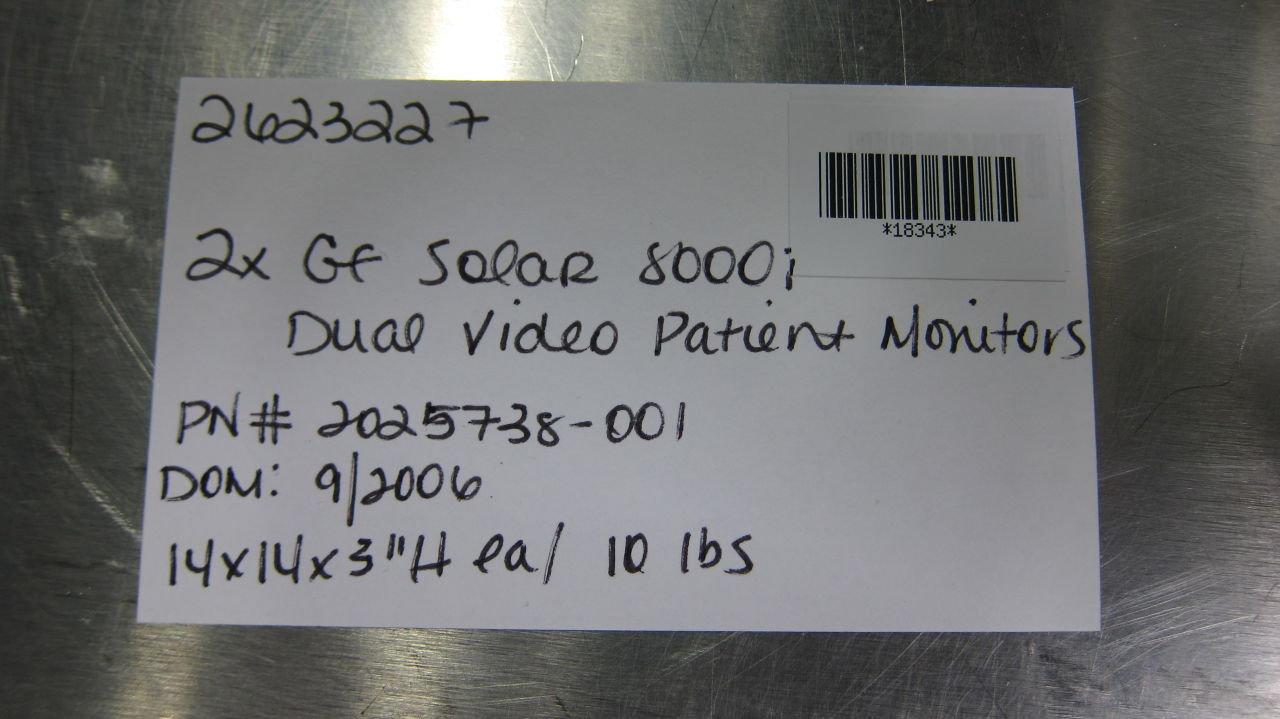 2623227
*18343*
2x GE Solar 8000i
Dual Video Patient Monitors
PN# 2025738-001
DOM: 9/2006
14x14x3"H ea/ 10 lbs